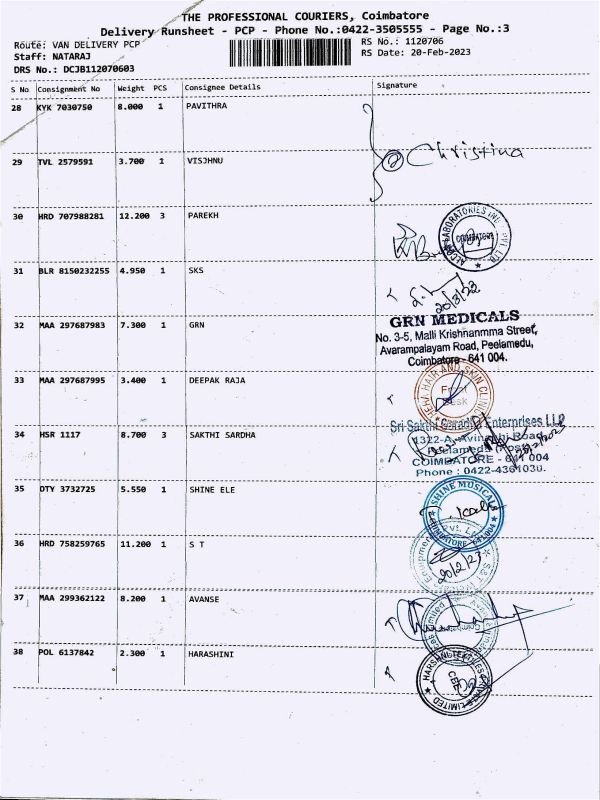 THE PROFESSIONAL COURIERS, Coimbatore
Delivery Runsheet - PCP - Phone No.:0422-3505555 - Page No.:3
Route: VAN DELIVERY PCP
RS No.: 1120706
Staff: NATARAJ
RS Date: 20-Feb-2023
DRS No.: DCJB112070603
S No Consignment No Weight PCS Consignee Details Signature
28 KYK 7030750 8.000 1 PAVITHRA
Christina
29 TVL 2579591 3.700 1 VISJHNU
30 HRD 707988281 12.200 3 PAREKH
LABORATORIES IND PVT LTD
COIMBATORE
31 BLR 8150232255 4.950 1 SKS
20/3/23
32 MAA 297687983 7.300 1 GRN
GRN MEDICALS
No. 3-5, Malli Krishnanmma Street,
Avarampalayam Road, Peelamedu,
Coimbatore - 641 004.
33 MAA 297687995 3.400 1 DEEPAK RAJA
HAIR AND SKIN CLINIC
Front
Desk
34 HSR 1117 8.700 3 SAKTHI SARDHA
Sri Sakthi Enterprises LLP
1322-A, Road
Peelamedu
COIMBATORE - 641 004
Phone : 0422-4361030.
35 DTY 3732725 5.550 1 SHINE ELE
SHINE MUSICALS
COIMBATORE - 641 004
36 HRD 758259765 11.200 1 S T
20/2/23
37 MAA 299362122 8.200 1 AVANSE
38 POL 6137842 2.300 1 HARASHINI
LIMITED